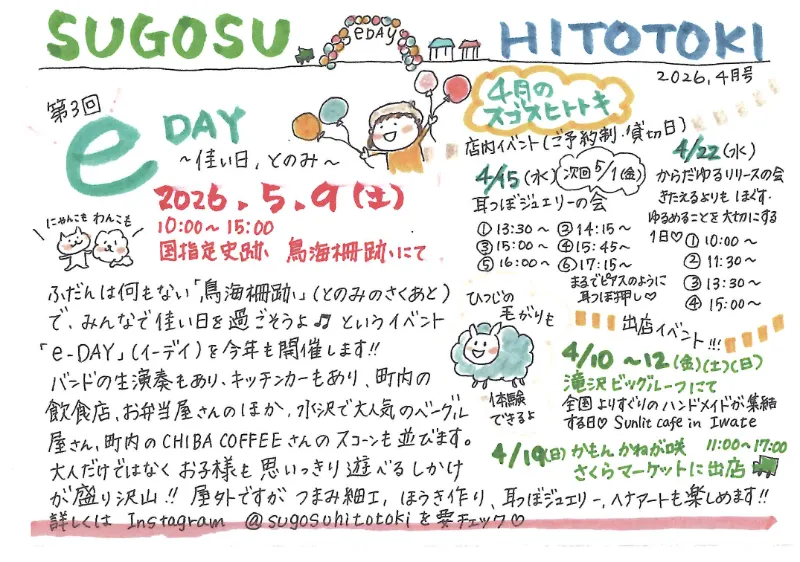 SUGOSU eDAY HITOTOKI
2026.4月号
第3回
e DAY
～佳い日、とのみ～
2026.5.9(土)
10:00～15:00
国指定史跡 鳥海柵跡にて
にゃんこも わんこも
ふだんは何もない「鳥海柵跡」(とのみのさくあと)
で、みんなで佳い日を過ごそうよ♫ というイベント
「e-DAY」(イーデイ)を今年も開催します!!
バンドの生演奏もあり、キッチンカーもあり、町内の
飲食店、お弁当屋さんのほか、水沢で大人気のベーグル
屋さん、町内のCHIBA COFFEEさんのスコーンも並びます。
大人だけではなく お子様も思いっきり遊べるしかけ
が盛り沢山!! 屋外ですが つまみ細工、ほうき作り、耳つぼジュエリー、ヘナアートも楽しめます!!
詳しくは Instagram @sugosuhitotokiを要チェック♡
4月の
スゴスヒトトキ
店内イベント(ご予約制・貸切日)
4/15(水) 次回5/1(金)
耳つぼジュエリーの会
① 13:30～ ② 14:15～
③ 15:00～ ④ 15:45～
⑤ 16:00～ ⑥ 17:15～
まるでピアスのように
耳つぼ押し♡
4/22(水)
からだゆるリリースの会
きたえるよりも ほぐす、
ゆるめることを大切にする
1日♡
① 10:00～
② 11:30～
③ 13:30～
④ 15:00～
ひつじの
毛がりも
体験
できるよ
出店イベント!!!
4/10～12(金)(土)(日)
滝沢ビッグルーフにて
全国よりすぐりのハンドメイドが集結
する日♡ Sunlit cafe in Iwate
4/19(日) かもん かねが咲 11:00～17:00
さくらマーケットに出店